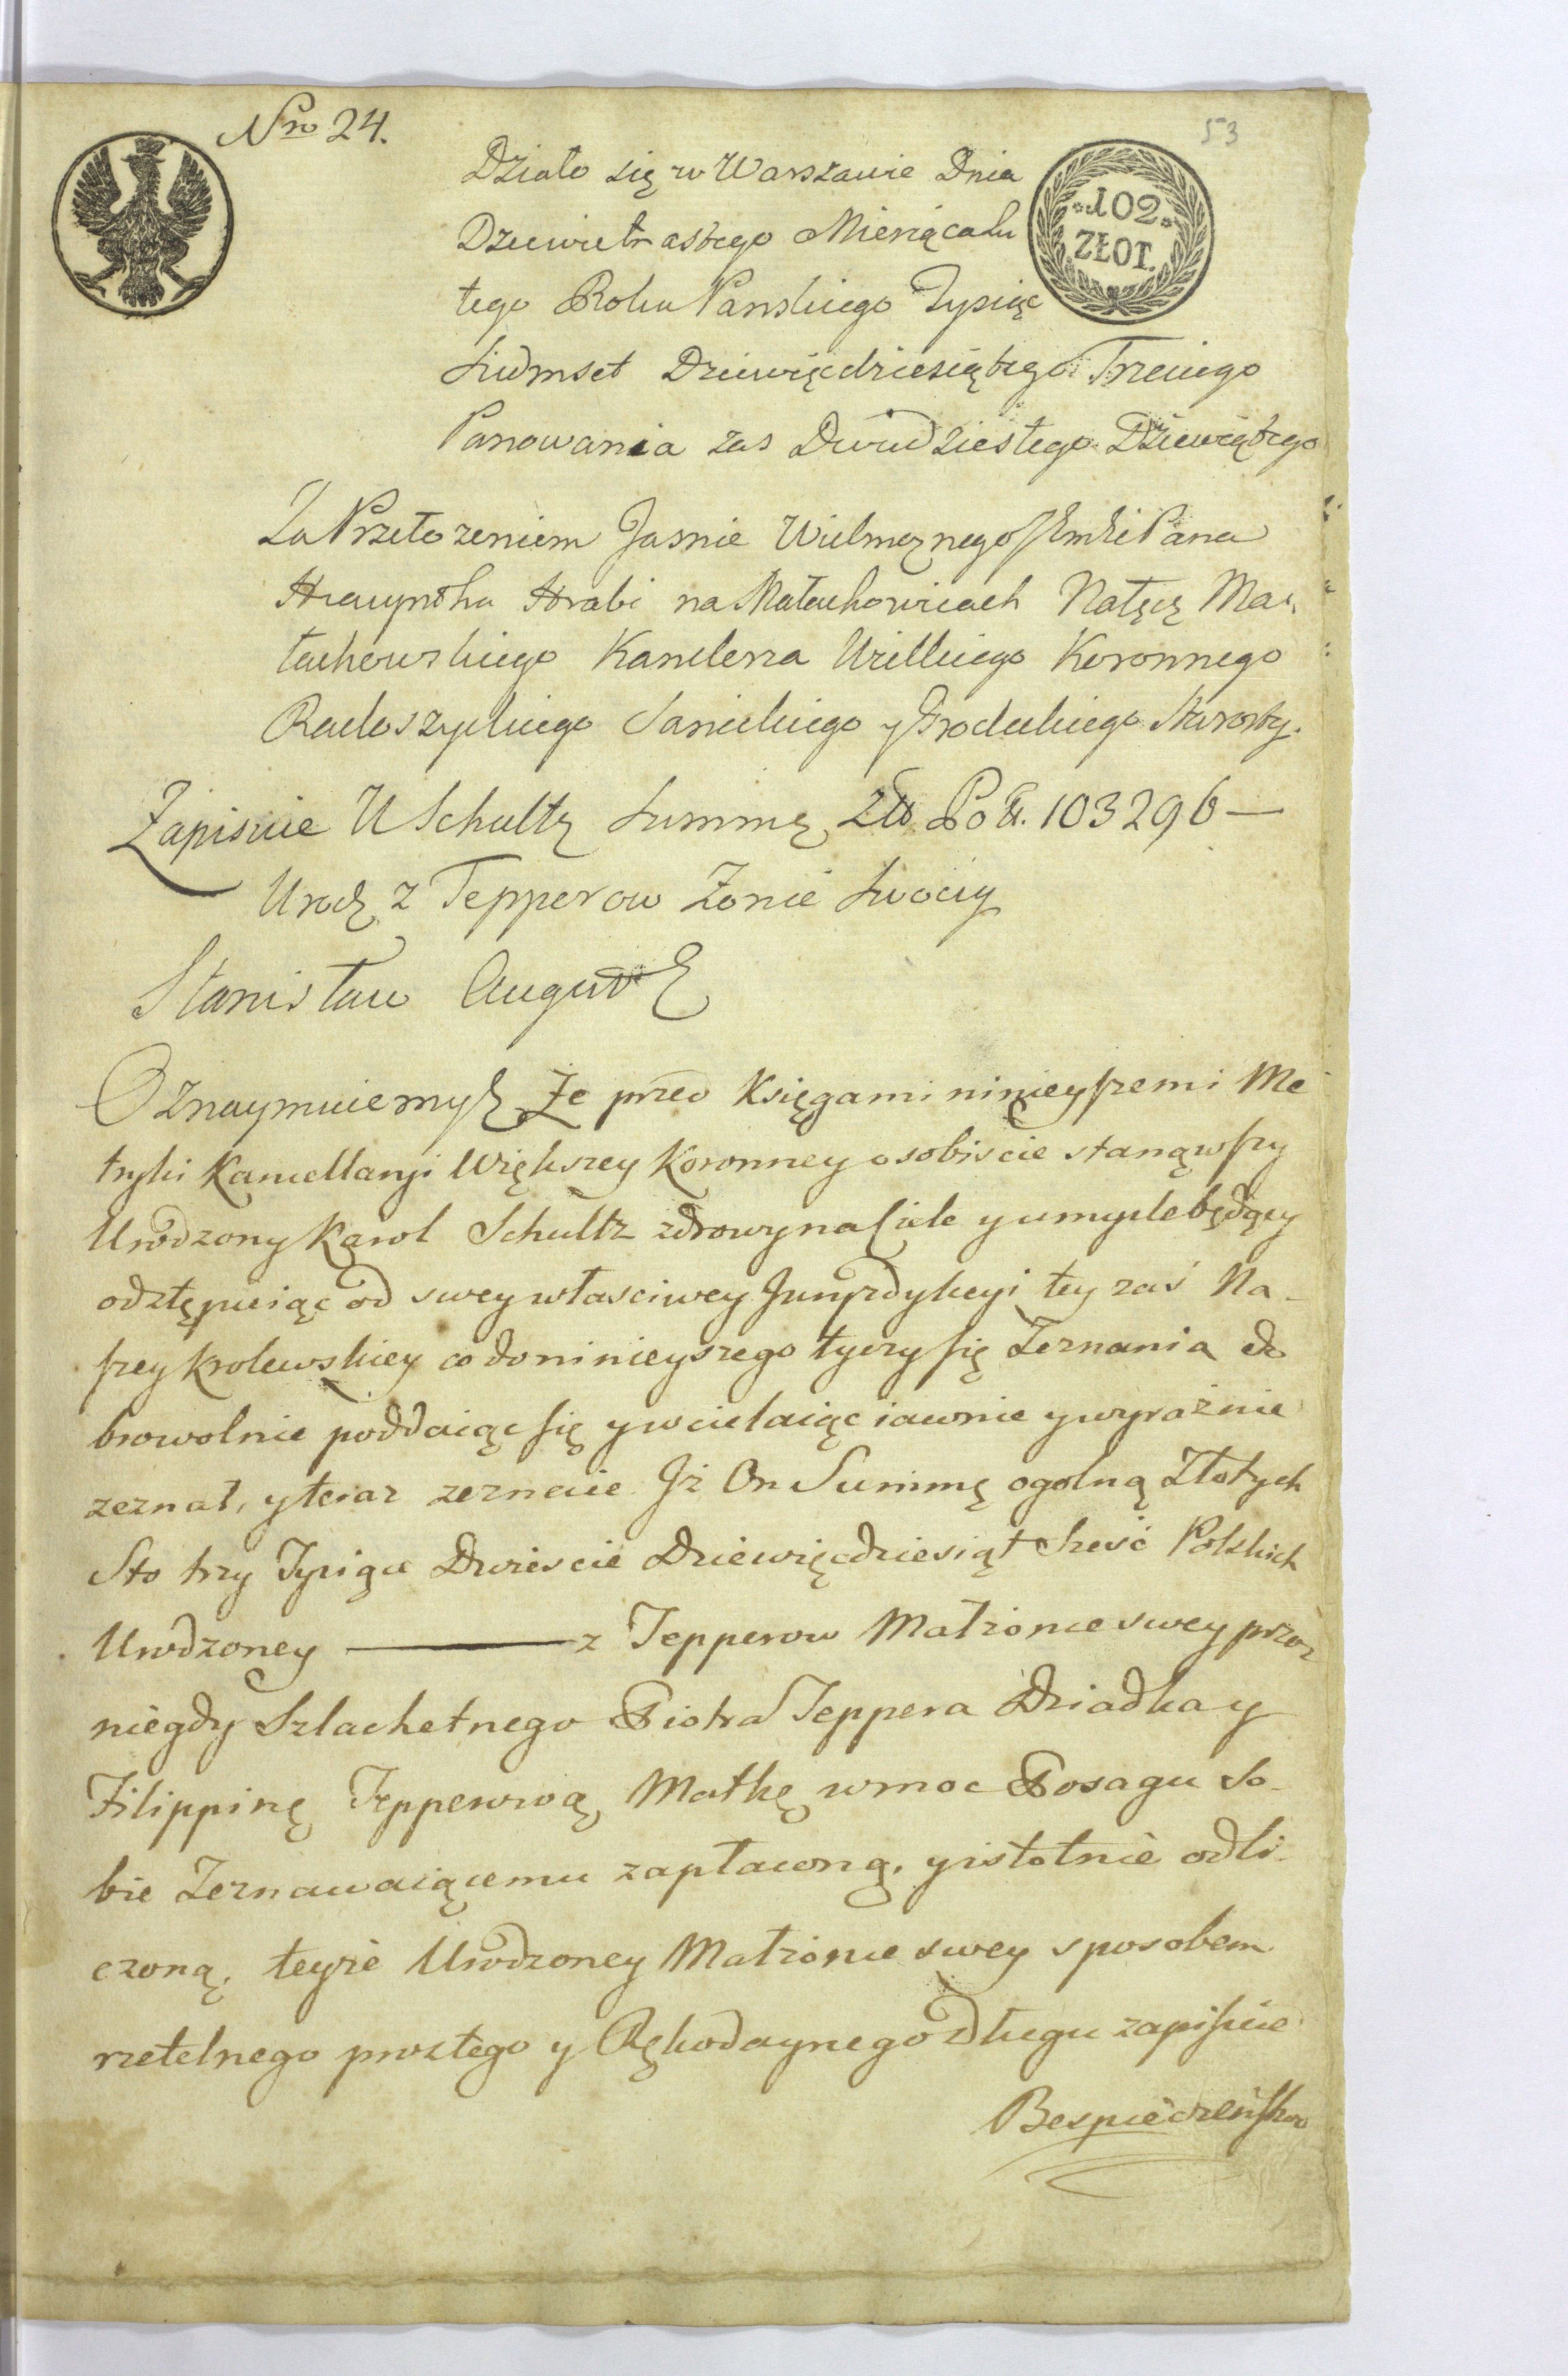 Nro 24.
53
102
ZŁOT.
Działo się w Warszawie Dnia
Dziewietnastego Miesiąca Lu
tego Roku Panskiego Tysiąc
Siedmset Dziewięcdziesiątego Trzeciego
Panowania zas Dwudziestego Dziewiątego
Za Przełozeniem Jasnie Wielmoznego Pana
Hiacyntha Hrabi na Małachowicach Nałęcz Ma,
łachowskiego Kanclerza Wielkiego Koronnego
Radoszyckiego Sanickiego y Grodeckiego Starosty.
Zapisuie U Schultz Summę Zło Pol. 103296 —
Urodz z Tepperow Zonie Swoiey
Stanisław August
Oznaymuiemy Że przed Księgami ninieyszemi Me
tryki Kancellaryi Większey Koronney osobiscie stanąwszy
Urodzony Karol Schultz zdrowy na Ciele y umysle będący
odstępuiąc od swey własciwey Juryzdykcyi tey zaś Na-
szey Krolewskiey co do ninieyszego tyczy się Zeznania do
browolnie poddaiąc się y wcielaiąc iawnie y wyraźnie
zeznał, y teraz zeznaie Iż On Summę ogolną Złotych
Sto trzy Tysiące Dwieście Dziewięcdziesiąt Sześć Polskich
Urodzoney ——— z Tepperow Małżonce swey przez
niegdy Szlachetnego Piotra Teppera Dziadka y
Filippinę Tepperową Matkę w moc Posagu So-
bie Zeznawaiącemu zapłaconą, y istotnie odli-
czoną, teyże Urodzoney Małżonce swey sposobem
rzetelnego prostego y Rękodaynego Długu zapisuie
Bespieczeństwo